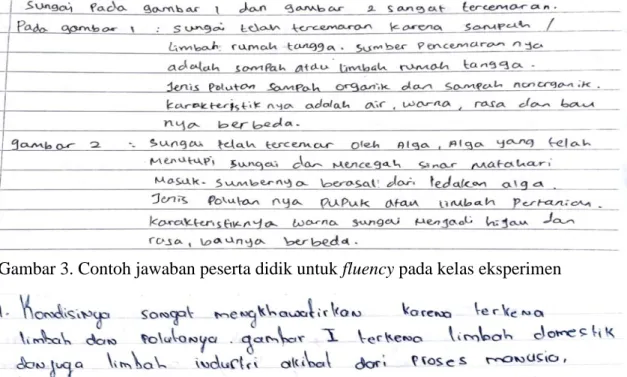 Sungai Pada gambar 1 dan gambar 2 sangat tercemaran.
Pada gambar 1 : Sungai telah tercemaran karena sampah /
Limbah rumah tangga. sumber Pencemaran nya
adalah sampah atau limbah rumah tangga.
Jenis Polutan sampah organik dan sampah nonorganik.
karakteristik nya adalah air, warna, rasa dan bau
nya berbeda.
gambar 2 : Sungai telah tercemar oleh Alga, Alga yang telah
menutupi sungai dan mencegah sinar matahari
masuk. sumbernya berasal dari ledakan alga.
Jenis Polutan nya PuPuk atau limbah Pertanian.
karakteristiknya warna sungai menjadi hijau dan
rasa, baunya berbeda.
Gambar 3. Contoh jawaban peserta didik untuk fluency pada kelas eksperimen
1. Kondisinya sangat mengkhawatirkan karena terkena
limbah dan polutanya. gambar I terkena limbah domestik
dan juga limbah industri akibat dari proses manusia,